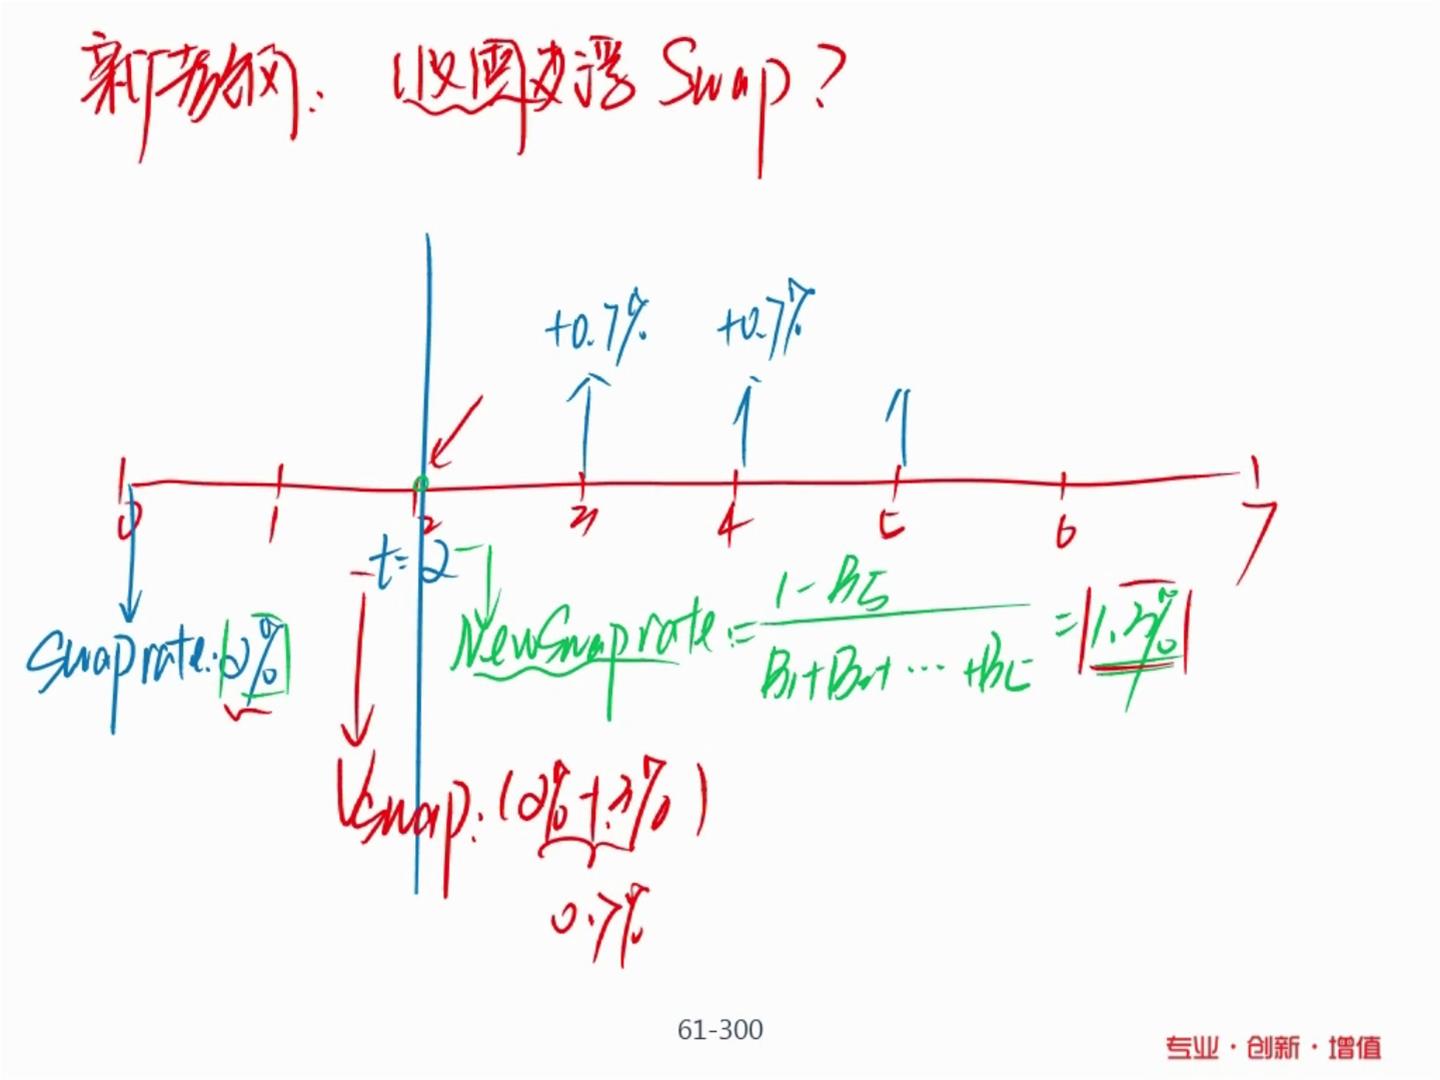 新方法: 收固支浮 Swap?
+0.7% +0.7%
0 1 2 3 4 5 6 7
t=2
Swap rate: 2%
New Swap rate: = 1-B5 / B1+B2+ ... +B5 = 1.3%
Vswap: (2%-1.3%)
0.7%
61-300
专业·创新·增值